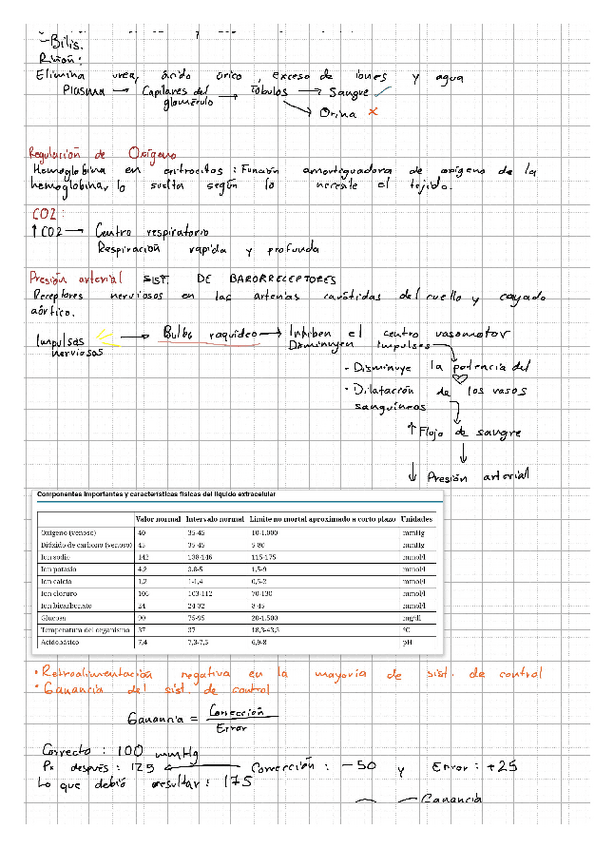 -Bilis.
Riñón:
Elimina urea, ácido úrico, exceso de iones y agua
Plasma → Capilares del glomérulo → Túbulos → Sangre ✓
→ Orina ✗
Regulación de Oxígeno
Hemoglobina en eritrocitos: Función amortiguadora de oxígeno de la
hemoglobina, lo suelta según lo necesite el tejido.
CO2:
↑ CO2 → Centro respiratorio
Respiración rapida y profunda
Presión arterial SIST. DE BARORRECEPTORES
Receptores nerviosos en las arterias carótidas del cuello y cayado
aórtico.
Impulsos nerviosos → Bulbo raquídeo → Inhiben el centro vasomotor
Disminuyen impulsos
- Disminuye la potencia del ♡
- Dilatación de los vasos
sanguíneos
↑ Flujo de sangre
↓ Presión arterial
Componentes importantes y características físicas del líquido extracelular
Valor normal Intervalo normal Límite no mortal aproximado a corto plazo Unidades
Oxígeno (venoso) 40 35-45 10-1.000 mmHg
Dióxido de carbono (venoso) 45 35-45 5-80 mmHg
Ion sodio 142 138-146 115-175 mmol/l
Ion potasio 4,2 3,8-5 1,5-9 mmol/l
Ion calcio 1,2 1-1,4 0,5-2 mmol/l
Ion cloruro 106 103-112 70-130 mmol/l
Ion bicarbonato 24 24-32 8-45 mmol/l
Glucosa 90 75-95 20-1.500 mg/dl
Temperatura del organismo 37 37 18,3-43,3 °C
Acidobásico 7,4 7,3-7,5 6,9-8 pH
• Retroalimentación negativa en la mayoría de sist. de control
• Ganancia del sist. de control
Ganancia = Corrección
Error
Correcto: 100 mmHg
Px después: 125 ← Corrección: -50 y Error: +25
Lo que debió resultar: 175
Ganancia